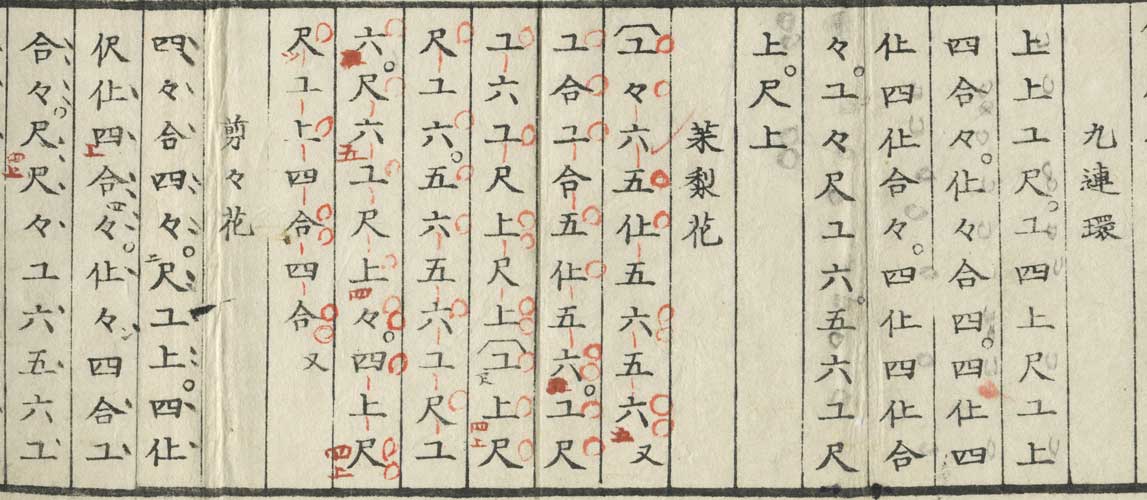 九連環
上上工尺。工四上尺工上
四合々。仩々合四。四仩四
仩四仩合々。四仩四仩合
々。工々尺工六。五六工尺
上。尺上
茉棃花
工々六五仩五六五六又
工合工合五仩五六。工尺
工六工尺上尺上工上尺
尺工六。五六五六工尺工
六。尺六工尺上々。四上尺
尺工上四合四合又
剪々花
四々合四々。尺工上。四仩
伬仩四合々。仩々四合工
合々。尺尺々工六五六工